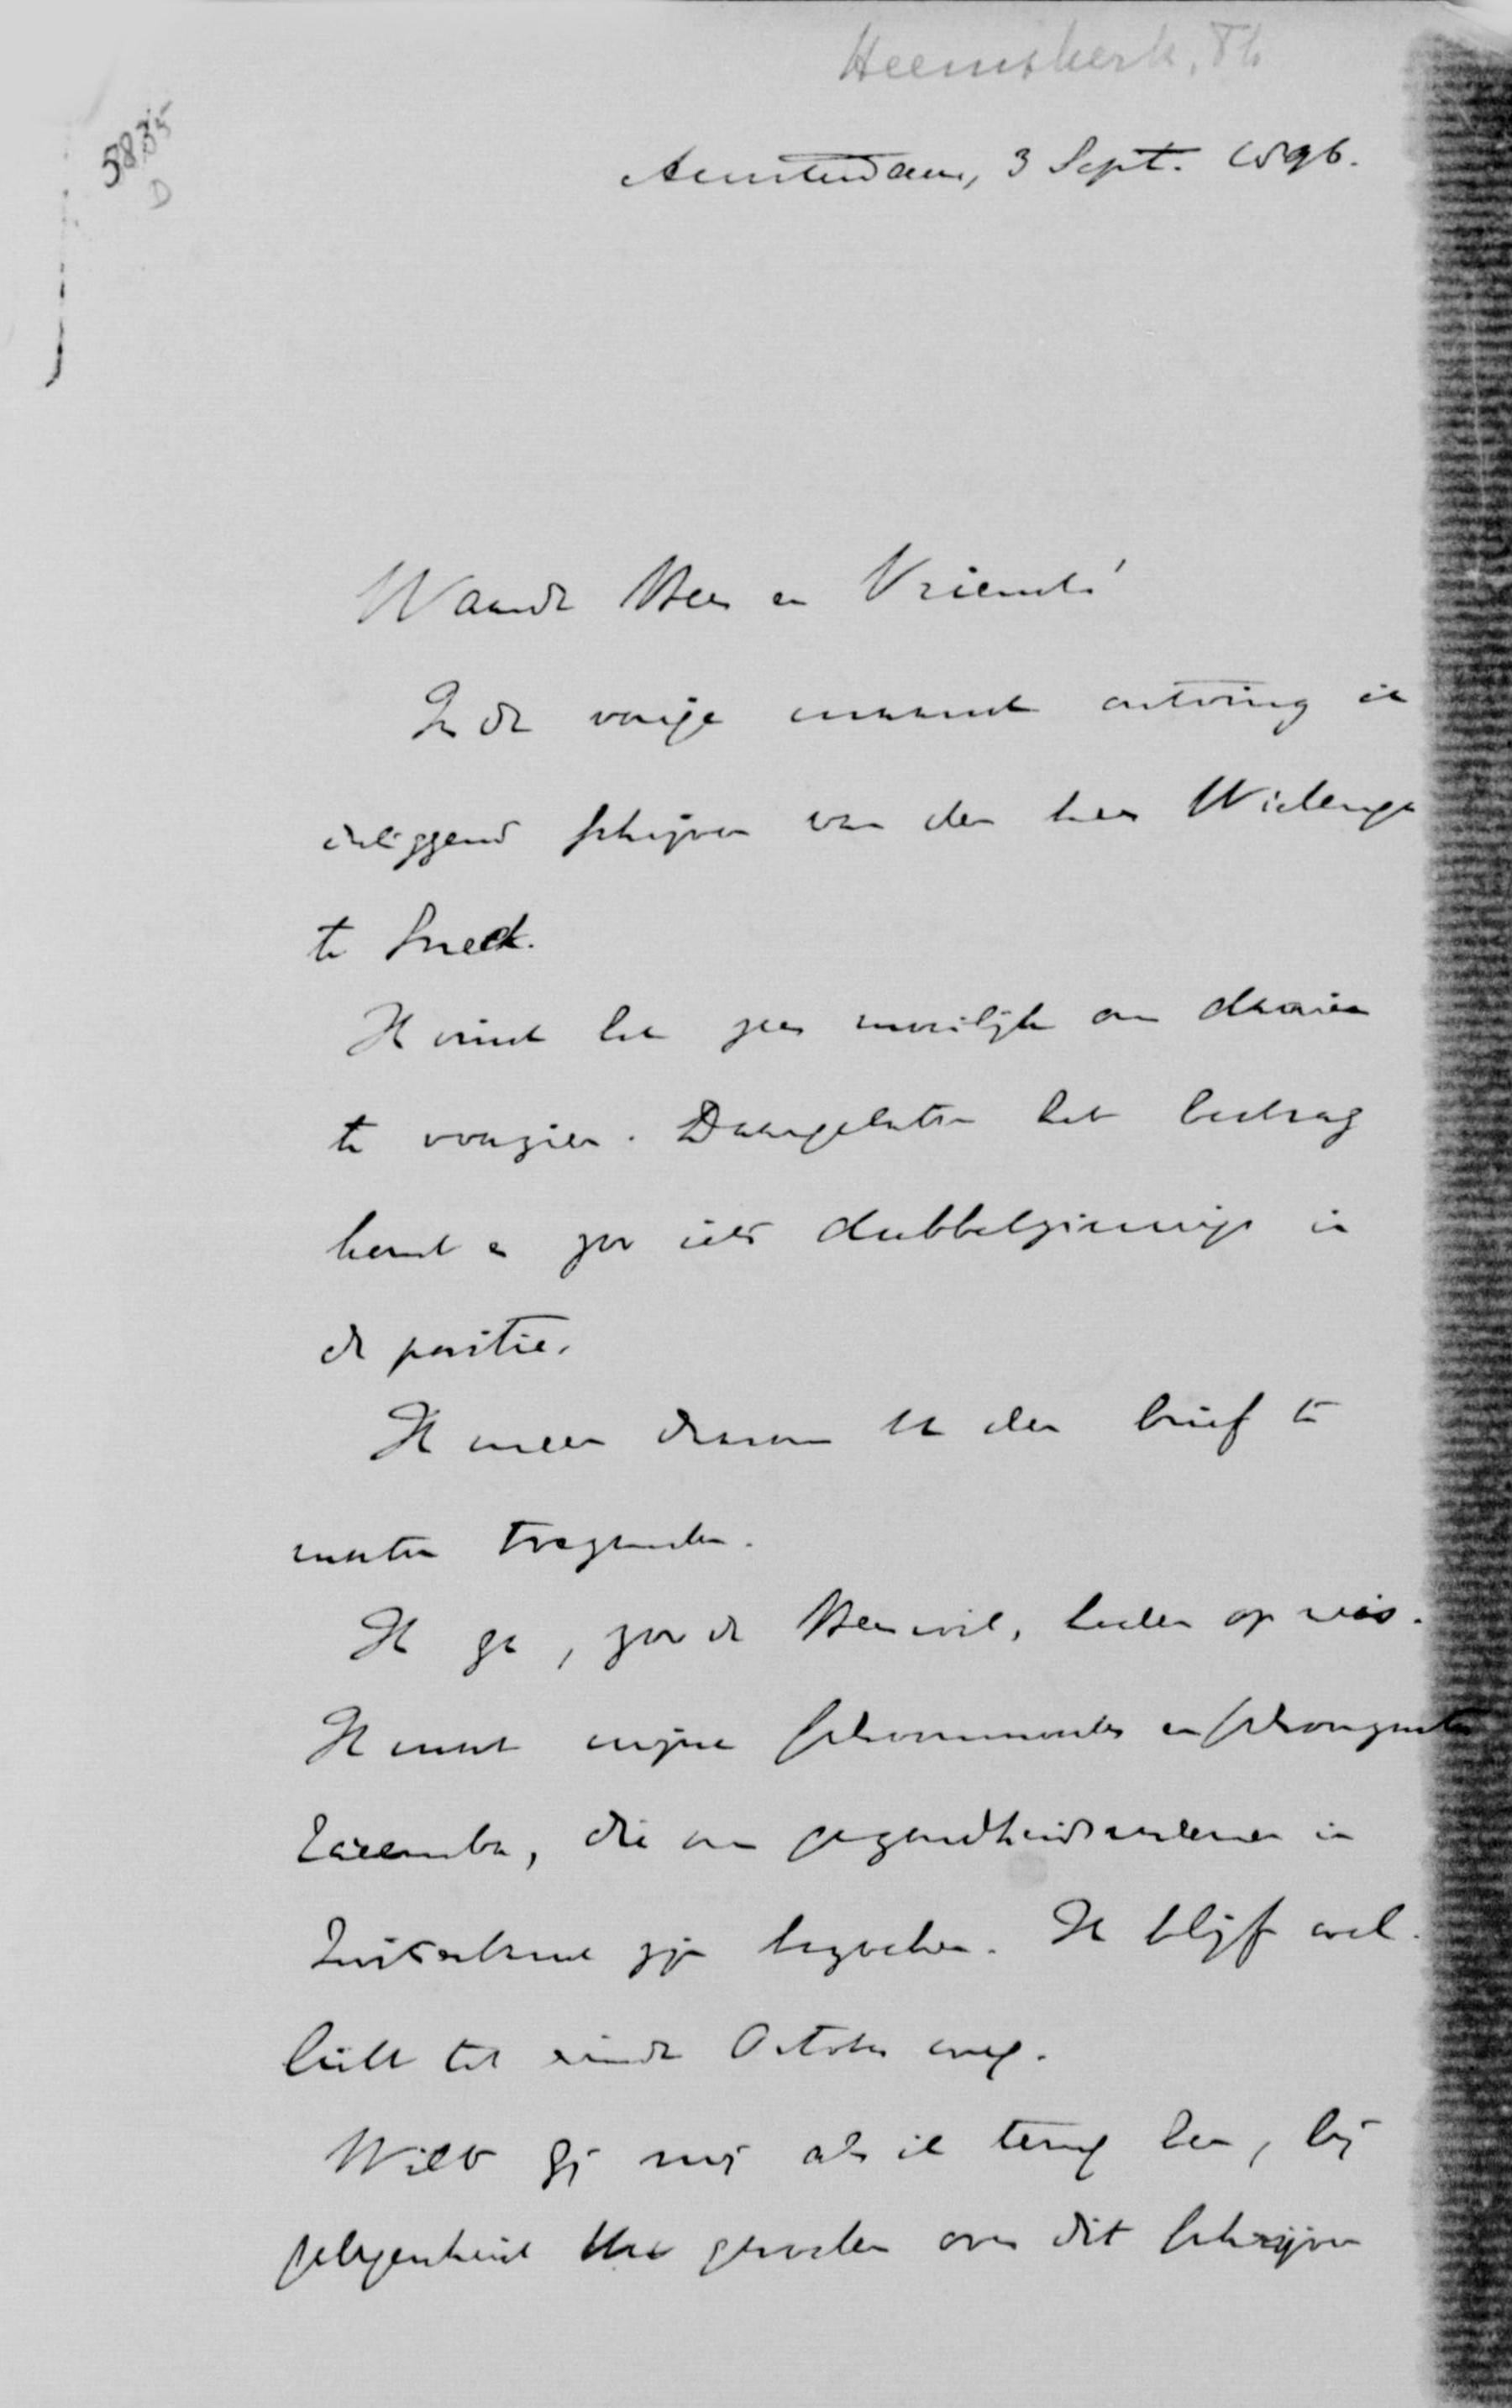 Heemskerk, Th
5835
D
Amsterdam, 3 Sept. 1896.
Waarde Heer en Vriend!
In de vorige maand ontving ik
inliggend schrijven van den heer Wielenga
te Sneek.
Ik vind het zeer moeilijk om daarin
te voorzien. Daargelaten het bedrag
komt er zoo iets dubbelzinnigs in
de positie.
Ik meen daarom U den brief te
moeten toezenden.
Ik ga, zoo de Heer wil, heden op reis.
Ik moet mijne schoonmoeder en schoonzuster
die om gezondheidsredenen in
Zwitserland zijn bezoeken. Ik blijf wel-
licht tot einde October weg.
Wilt gij mij als ik terug ben, bij
gelegenheid Uw gevoelen over dit schrijven